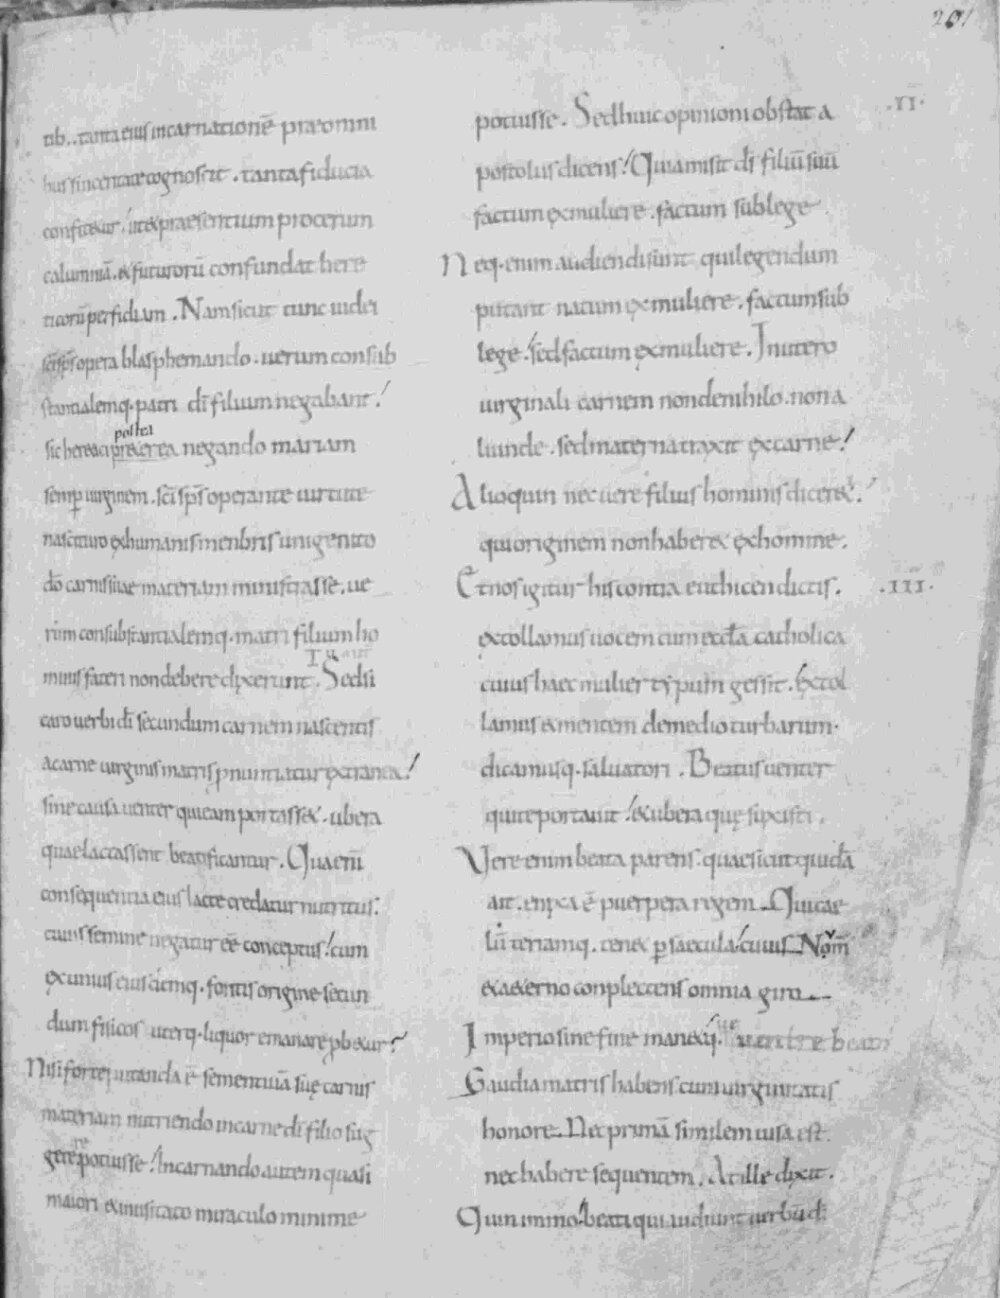 201
tib.. tanta eius incarnationē prae omni
bus sinceritate cognoscit . tanta fiducia
confitetur . ut et praesentium procerum
calumniā . et futurorū confundat here
ticorū perfidiam . Nam sicut tunc iudei
scī sps opera blasphemando . uerum consub
stantialemq . patri dī filium negabant .
postea
sic heretici preterea negando mariam
semp uirginem . scī sps operante uirtute
nascituro ex humanis menbris unigenito
dō carnis suae materiam ministrasse . ue
rum consubstantialemq . matri filium ho
minis fateri non debere dixerunt . Sed si
caro uerbi dī secundum carnem nascentis
a carne uirginis matris pnuntiatur extranea
sine causa uenter qui eam portasset . ubera
quae lactassent beatificantur . Qua enī
consequentia eius lacte credatur nutritus .
cuius semine negatur eē conceptus ! cum
ex unius eiusdemq . fontis origine secun
dum fisicos uterq . liquor emanare pbetur
Nisi forte putanda ē sementiuā suę carnis
materiam nutriendo in carne dī filio sug
gerere potuisse . Incarnando autem quasi
maiori et inusitato miraculo minime
potuisse . Sed huic opinioni obstat a
.II.
postolus dicens ! Quia misit dī filiū suū
factum ex muliere . factum sub lege .
Neq . enim audiendi sunt qui legendum
putant natum ex muliere . factum sub
lege . sed factum ex muliere . In utero
uirginali carnem non de nihilo . non a
liunde . sed materna traxit ex carne !
Alioquin nec uere filius hominis diceret .
qui originem non haberet ex homine .
Et nos igitur his contra euthicen dictis .
.III.
extollamus uocem cum ecclā catholica
cuius haec mulier typum gessit . Extol
lamus et mentem de medio turbarum .
dicamusq . saluatori . Beatus uenter
qui te portauit ! et ubera quę suxisti .
Vere enim beata parens . quae sicut quidā
ait . enixa ē puerpera regem . Qui cae
lū terramq . tenet p saecula ! cuius Nom̄
et aeterno conplectens omnia giro .
Imperio sine fine manet q . ventre beato
Gaudia matris habens cum uirginitatis
honore . Nec primā similem uisa est .
nec habere sequentem . At ille dixit .
Quinimmo beati qui audiunt uerbū dī